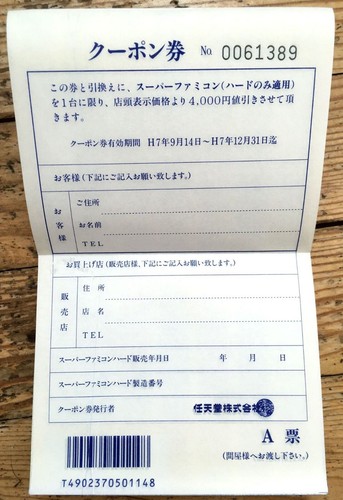 クーポン券 No. 0061389
この券と引換えに、スーパーファミコン(ハードのみ適用)
を1台に限り、店頭表示価格より4,000円値引きさせて頂
きます。
クーポン券有効期間 H7年9月14日〜H7年12月31日迄
お客様(下記にご記入お願い致します。)
お客様
ご住所
お名前
TEL
お買上げ店(販売店様、下記にご記入お願い致します。)
販売店
住所
店名
TEL
スーパーファミコンハード販売年月日 年 月 日
スーパーファミコンハード製造番号
クーポン券発行者 任天堂株式会社
A 票
(問屋様へお渡し下さい。)
T4902370501148